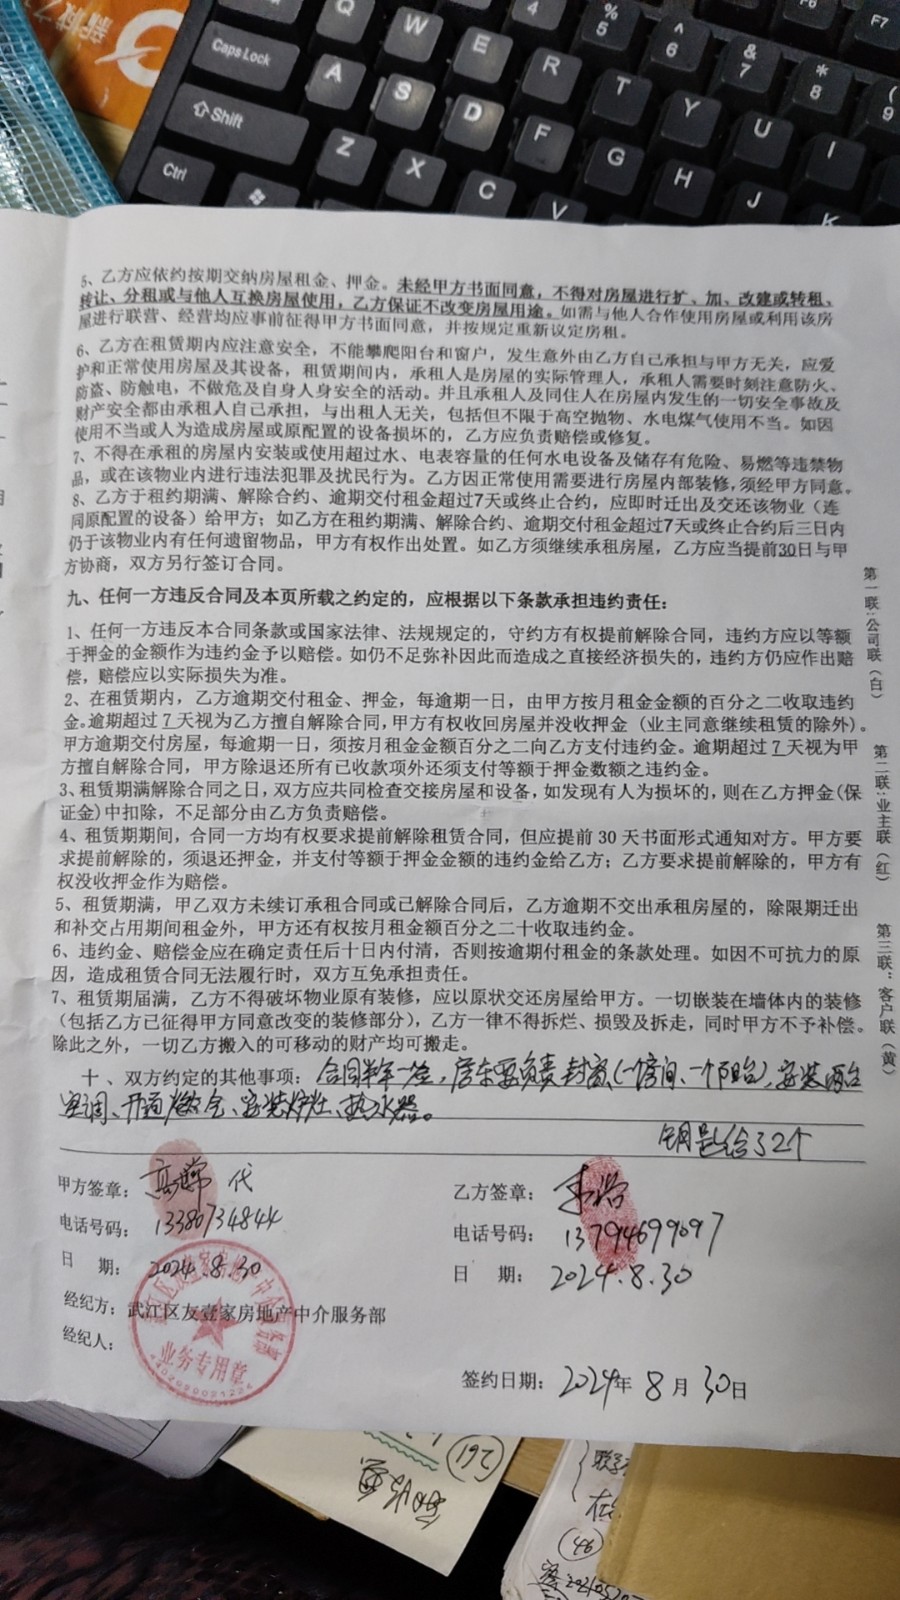 Q
W
E
R
T
Y
U
I
4
%
5
^
6
&
7
*
8
(
9
F6
F7
Caps Lock
A
S
D
F
G
H
J
K
Shift
Z
X
C
V
Ctrl
5、乙方应依约按期交纳房屋租金、押金。未经甲方书面同意，不得对房屋进行扩、加、改建或转租、
转让、分租或与他人互换房屋使用，乙方保证不改变房屋用途。如需与他人合作使用房屋或利用该房
屋进行联营、经营均应事前征得甲方书面同意，并按规定重新议定房租。
6、乙方在租赁期内应注意安全，不能攀爬阳台和窗户，发生意外由乙方自己承担与甲方无关，应爱
护和正常使用房屋及其设备，租赁期间内，承租人是房屋的实际管理人，承租人需要时刻注意防火、
防盗、防触电，不做危及自身人身安全的活动。并且承租人及同住人在房屋内发生的一切安全事故及
财产安全都由承租人自己承担，与出租人无关，包括但不限于高空抛物、水电煤气使用不当。如因
使用不当或人为造成房屋或原配置的设备损坏的，乙方应负责赔偿或修复。
7、不得在承租的房屋内安装或使用超过水、电表容量的任何水电设备及储存有危险、易燃等违禁物
品，或在该物业内进行违法犯罪及扰民行为。乙方因正常使用需要进行房屋内部装修，须经甲方同意。
8、乙方于租约期满、解除合约、逾期交付租金超过7天或终止合约，应即时迁出及交还该物业（连
同原配置的设备）给甲方；如乙方在租约期满、解除合约、逾期交付租金超过7天或终止合约后三日内
仍于该物业内有任何遗留物品，甲方有权作出处置。如乙方须继续承租房屋，乙方应当提前30日与甲
方协商，双方另行签订合同。
九、任何一方违反合同及本页所载之约定的，应根据以下条款承担违约责任：
1、任何一方违反本合同条款或国家法律、法规规定的，守约方有权提前解除合同，违约方应以等额
于押金的金额作为违约金予以赔偿。如仍不足弥补因此而造成之直接经济损失的，违约方仍应作出赔
偿，赔偿应以实际损失为准。
2、在租赁期内，乙方逾期交付租金、押金，每逾期一日，由甲方按月租金金额的百分之二收取违约
金。逾期超过 7 天视为乙方擅自解除合同，甲方有权收回房屋并没收押金（业主同意继续租赁的除外）。
甲方逾期交付房屋，每逾期一日，须按月租金金额百分之二向乙方支付违约金。逾期超过 7 天视为甲
方擅自解除合同，甲方除退还所有已收款项外还须支付等额于押金数额之违约金。
3、租赁期满解除合同之日，双方应共同检查交接房屋和设备，如发现有人为损坏的，则在乙方押金(保
证金)中扣除，不足部分由乙方负责赔偿。
4、租赁期期间，合同一方均有权要求提前解除租赁合同，但应提前 30 天书面形式通知对方。甲方要
求提前解除的，须退还押金，并支付等额于押金金额的违约金给乙方；乙方要求提前解除的，甲方有
权没收押金作为赔偿。
5、租赁期满，甲乙双方未续订承租合同或已解除合同后，乙方逾期不交出承租房屋的，除限期迁出
和补交占用期间租金外，甲方还有权按月租金额百分之二十收取违约金。
6、违约金、赔偿金应在确定责任后十日内付清，否则按逾期付租金的条款处理。如因不可抗力的原
因，造成租赁合同无法履行时，双方互免承担责任。
7、租赁期届满，乙方不得破坏物业原有装修，应以原状交还房屋给甲方。一切嵌装在墙体内的装修
（包括乙方已征得甲方同意改变的装修部分），乙方一律不得拆烂、损毁及拆走，同时甲方不予补偿。
除此之外，一切乙方搬入的可移动的财产均可搬走。
十、双方约定的其他事项：合同半年一签，房东要负责封窗（一个房间、一个阳台），安装两台
空调、开通燃气、安装炉灶、热水器。
钥匙给了2个
甲方签章： 代
乙方签章：
电话号码：13380734844
电话号码：13794699097
日 期：2024.8.30
日 期：2024.8.30
经纪方：武江区友壹家房地产中介服务部
经纪人：
业务专用章
签约日期：2024年 8 月 30日
第一联：公司联（白）
第二联：业主联（红）
第三联：客户联（黄）
(26)
(46)